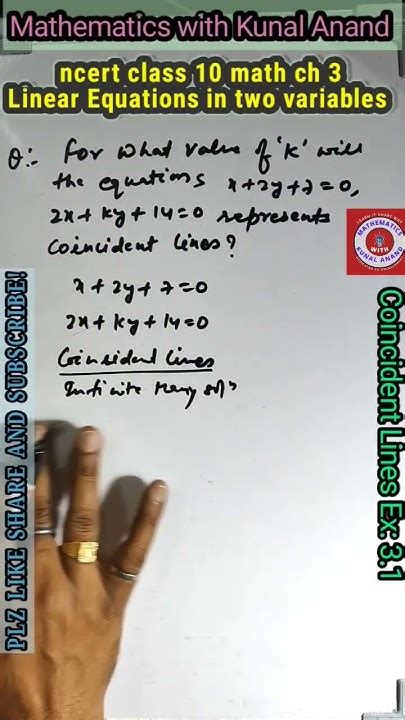 Mathematics with Kunal Anand
ncert class 10 math ch 3
Linear Equations in two variables
Q:- For what value of 'K' will
the equations x+2y+7=0,
2x+ky+14=0 represents
coincident lines?
x+2y+7=0
2x+ky+14=0
Coincident lines
Infinite many solⁿ
PLZ LIKE SHARE AND SUBSCRIBE!
Coincident Lines Ex:3.1
MATHEMATICS
WITH
KUNAL ANAND